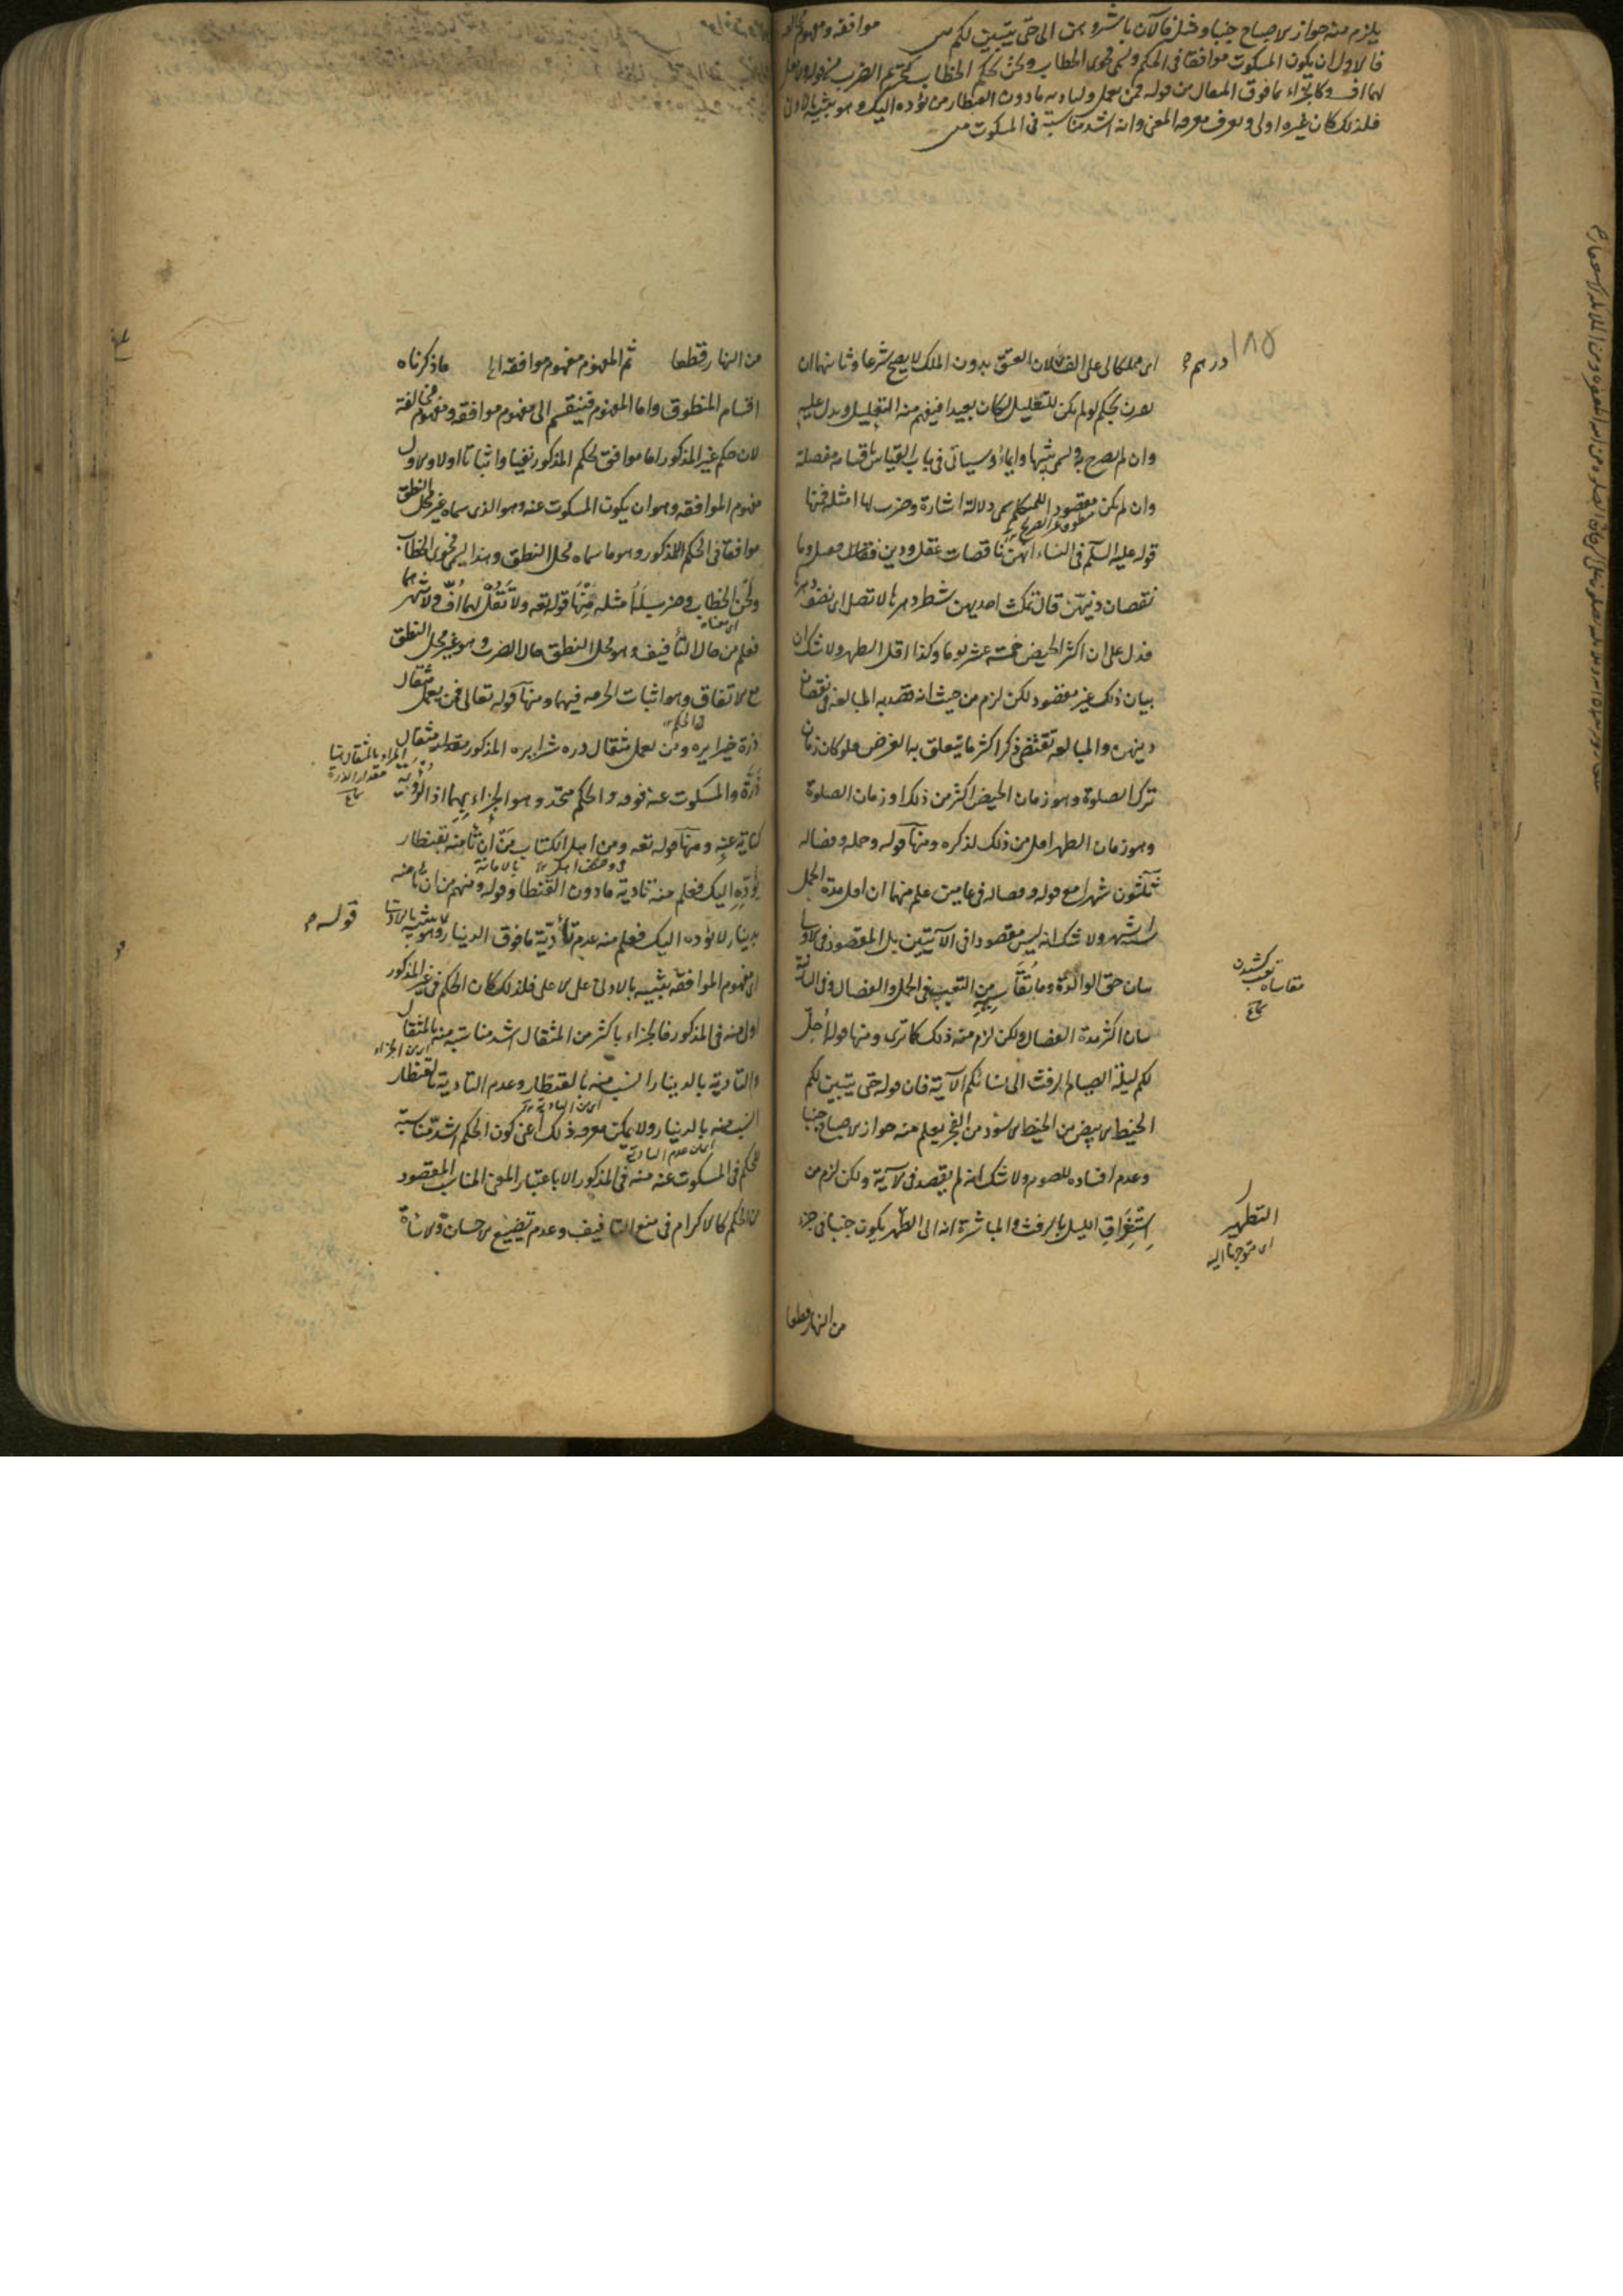 يلزم منه جواز الاصباح جنبا ومثله فالآن باشروهن الى حتى يتبين لكم
موافقة ومفهوم
فالاول ان يكون المسكوت موافقا في الحكم ويسمى فحوى الخطاب ولحن الخطاب كتحريم الضرب من قوله
لهما اف وكالجزاء بما فوق المثقال من قوله فمن يعمل وتادية مادون القنطار من يؤده اليك وهو تنبيه بالادنى
فلذلك كان غيره اولى ويعرف بمعرفة المعنى وانه اشد مناسبة في المسكوت
١٨٥
درهم
اى مملكا لى على الف لان العتق بدون الملك لا يصح شرعا وثانيهما ان
يقرن بحكم لو لم يكن للتعليل لكان بعيدا فيفهم منه التعليل ويدل عليه
وان لم يصرح به ويسمى تنبيها وايماء وسياتى في باب القياس باقسامه مفصلة
وان لم يكن مقصود المتكلم يسمى دلالة اشارة وضرب لها امثلة فمنها
قوله عليه السلم في النساء انهن ناقصات عقل ودين فقيل وما
نقصان دينهن قال تمكث احديهن شطر دهرها لا تصلى اى نصف دهرها
فدل على ان اكثر الحيض خمسة عشر يوما وكذا اقل الطهر ولا شك ان
بيان ذلك غير مقصود لكن لزم من حيث انه قصد به المبالغة في نقصان
دينهن والمبالغة تقتضى ذكر اكثر ما يتعلق به الغرض فلو كان زمان
ترك الصلوة وهو زمان الحيض اكثر من ذلك او زمان الصلوة
وهو زمان الطهر اقل من ذلك لذكره ومنها قوله وحمله وفصاله
ثلثون شهرا مع قوله وفصاله في عامين علم منهما ان اقل مدة الحمل
ستة اشهر ولا شك انه ليس مقصودا في الآيتين بل المقصود في الاولى
بيان حق الوالدة وما تقاسيه من التعب في الحمل والفصال وفي الثانية
بيان اكثر مدة الفصال ولكن لزم منه ذلك كما ترى ومنها قوله احل
لكم ليلة الصيام الرفث الى نسائكم الآية فان قوله حتى يتبين لكم
الخيط الابيض من الخيط الاسود من الفجر يعلم منه جواز الاصباح جنبا
وعدم افساده للصوم ولا شك انه لم يقصد في الآية ولكن لزم من
استغراق الليل بالرفث والمباشرة انه الى التطهر يكون جنبا في جزء
من النهار قطعا
مقاساة تعب كشيدن
التطهير
اى متوجها اليه
من النهار قطعا ثم المفهوم مفهوم موافقة الخ ما ذكرناه
اقسام المنطوق واما المفهوم فينقسم الى مفهوم موافقة ومفهوم مخالفة
لان حكم غير المذكور اما موافق لحكم المذكور نفيا واثباتا اولا والاول
مفهوم الموافقة وهو ان يكون المسكوت عنه وهو الذى سماه غير محل النطق
موافقا في الحكم المذكور وهو ما سماه محل النطق وهذا يسمى فحوى الخطاب
ولحن الخطاب وضرب له امثلة منها قوله تعه ولا تقل لهما اف ولا تنهرهما
فعلم من حال التأفيف وهو محل النطق حال الضرب وهو غير محل النطق
مع الاتفاق وهو اثبات الحرمة فيهما ومنها قوله تعالى فمن يعمل مثقال
ذرة خيرا يره ومن يعمل مثقال ذره شرا يره المذكور مقدار مثقال
ذرة والمسكوت عنه فوقه والحكم متحد وهو الجزاء بهما اذ الرؤية
كناية عنه ومنها قوله تعه ومن اهل الكتاب من ان تأمنه بقنطار
يؤده اليك فعلم منه تادية مادون القنطار وقوله ومنهم من ان تأمنه
بدينار لا يؤده اليك فعلم منه عدم تأدية مافوق الدينار وهو تنبيه بالادنى
اى مفهوم الموافقة تنبيه بالادنى على الاعلى فلذلك كان الحكم في غير المذكور
اولى منه في المذكور فالجزاء باكثر من المثقال اشد مناسبة منه بالمثقال
والتادية بالدينار انسب منه بالقنطار وعدم التادية بالقنطار
انسب منه بالدينار ولا يمكن معرفة ذلك اعنى كون الحكم اشد مناسبة
للحكم في المسكوت عنه منه في المذكور الا باعتبار المعنى المناسب المقصود
من الحكم كالاكرام في منع التأفيف وعدم تضييع الاحسان والاساءة
المراد بالمثقال هنا
مقدار الذرة
قوله